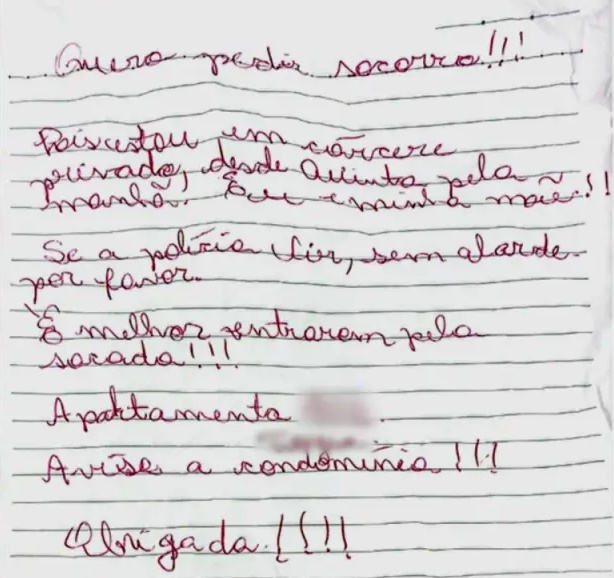 Quero pedir socorro!!!
Pois estou em cárcere
privado, desde Quinta pela
manhã! Eu e minha mãe!!
Se a polícia vir, sem alarde
por favor.
É melhor entrarem pela
sacada!!!
Apartamento
Avise a condomínio!!!
Obrigada!!!!